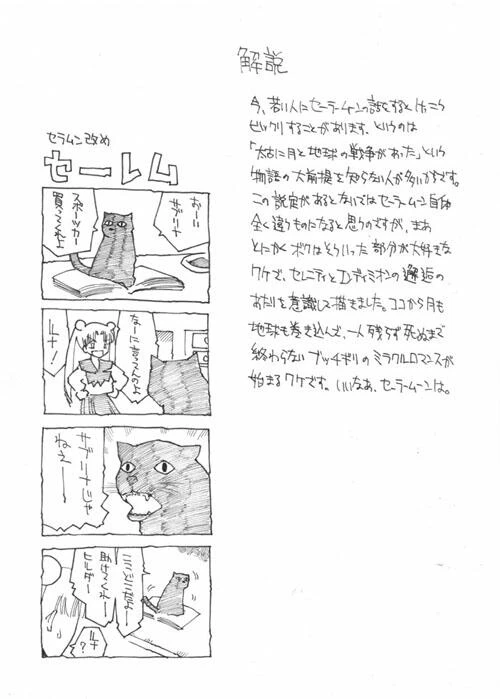 解説
今、若い人にセーラームーンの話をするとけっこう
ビックリすることがあります。というのは
「太古に月と地球の戦争があった」という
物語の大前提を知らない人が多いからです。
この設定があるとないではセーラームーン自体
全く違うものになると思うのですが、まあ
とにかくボクはそういった部分が大好きな
ワケで、セレニティとエンディミオンの邂逅の
あたりを意識して描きました。ココから月も
地球も巻き込んで、一人残らず死ぬまで
終わらないブッチギリのミラクルロマンスが
始まるワケです。いいなあ、セーラームーンは。
セラムン改め
セーレム
おーい
サブリナ
スポーツカー
買ってくれよ
なーに言ってんのよ
ルナ!
サブリナじゃ
ねえー
ここどこだよー
助けてくれー
ヒルダー
ルナ
?